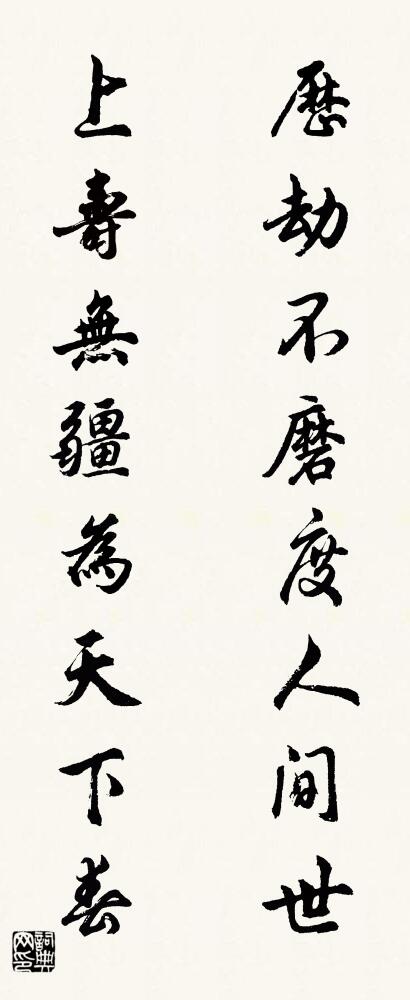 歷劫不磨度人间世
上壽無疆為天下春
詞典网印